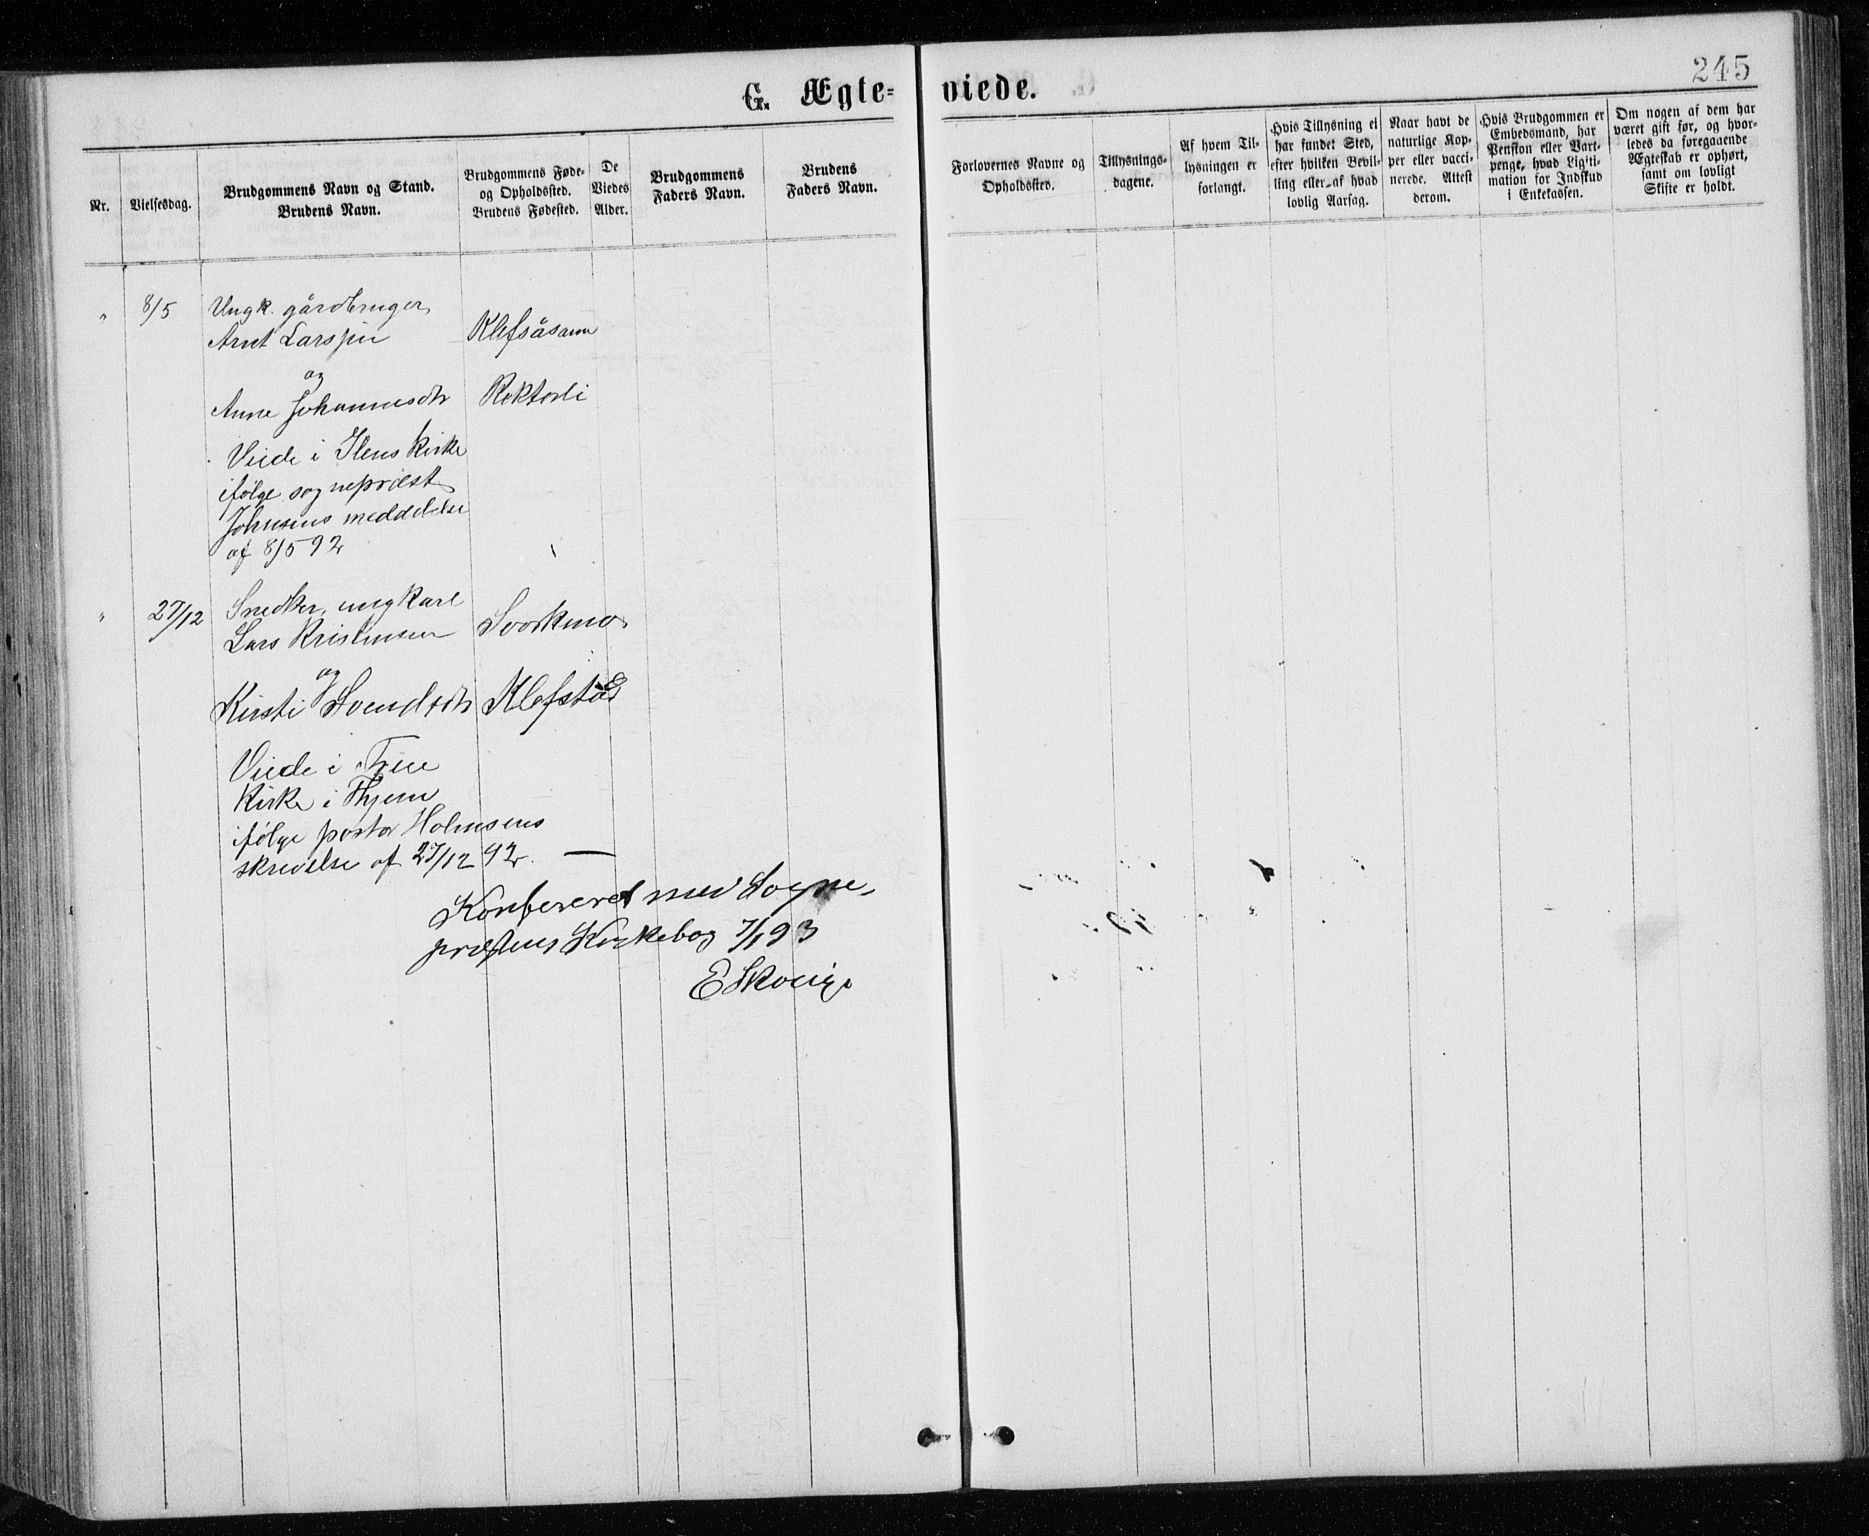 245
G. Ægte-
viede.
Nr.
Vielsesdag.
Brudgommens Navn og Stand.
Brudens Navn.
Brudgommens Føde-
og Opholdssted.
Brudens Fødested.
De
Viedes
Alder.
Brudgommens
Faders Navn.
Brudens
Faders Navn.
Forlovernes Navne og
Opholdssted.
Tillysnings-
dagene.
Af hvem Til-
lysningen er
forlangt.
Hvis Tillysning ei
har fundet Sted,
efter hvilken Bevil-
ling eller af hvad
lovlig Aarsag.
Naar havt de
naturlige Kop-
per eller vacci-
nerede. Attest
derom.
Hvis Brudgommen er
Embedsmand, har
Pension eller Vart-
penge, hvad Ligiti-
mation for Indskud
i Enkekassen.
Om nogen af dem har
været gift før, og hvor-
ledes da foregaaende
Ægteskab er ophørt,
samt om lovligt
Skifte er holdt.
" 8/5 Ungk. gårdbruger
Arnt Larssen Klefsåsaun
og
Anne Johannesdtr Rektorli
Viede i Ilens Kirke
ifølge sogneprest
Johnsens meddelelse
af 8/5 92
" 27/12 Snedker, ungkarl
Lars Kristensen Svorkmo
og
Kirsti Svendsdtr Klefstås
Viede i Frue
Kirke i Thjem
ifølge pastor Holmsens
skrivelse af 27/12 92.
Konfereret med Sogne-
præstens Kirkebog 7/1 93